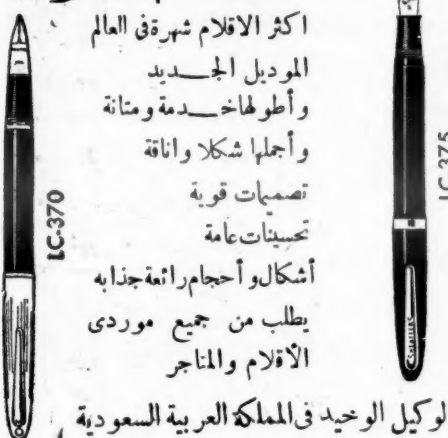 اكثر الاقلام شهرة فى العالم
الموديل الجـــديد
وأطولها خـــدمة ومتانة
وأجملها شكلا واناقة
تصميمات قوية
تحسينات عامة
أشكال وأحجام رائعة جذابه
يطلب من جميع موردى
الأقلام والمتاجر
لوكيل الوحيد فى المملكة العربية السعودية
LC-370
LC-375